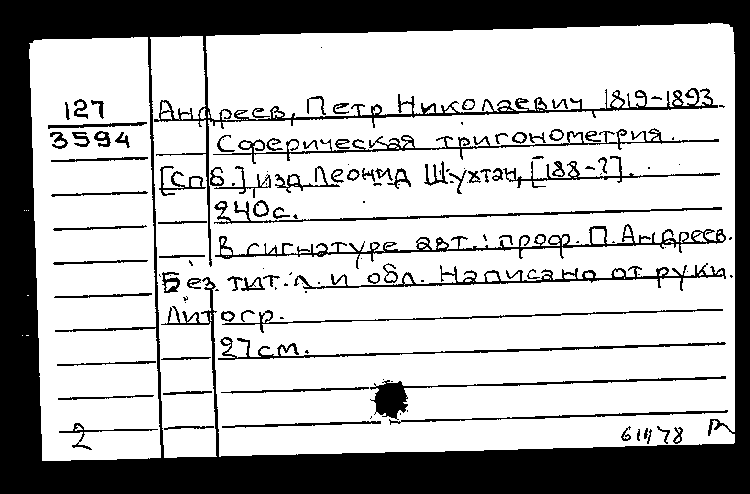 127
3594
Андреев, Петр Николаевич, 1819-1893
Сферическая тригонометрия.
[Спб.], изд. Леонид Шухтан, [188-?].
240с.
В сигнатуре авт.: проф. П. Андреев.
Без тит. л. и обл. Написано от руки.
Литогр.
27см.
2